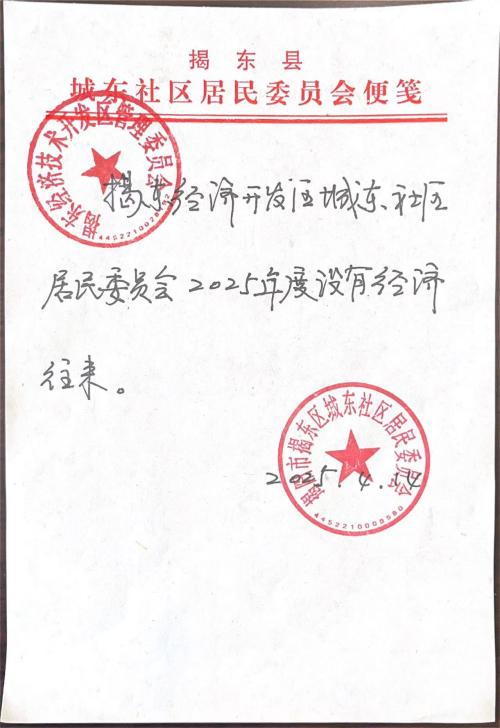 揭东县
城东社区居民委员会便笺
揭东经济技术开发区管理委员会
揭东经济开发区城东社区
居民委员会2025年度没有经济
往来。
揭阳市揭东区城东社区居民委员会
2025.4.14
4452210009580